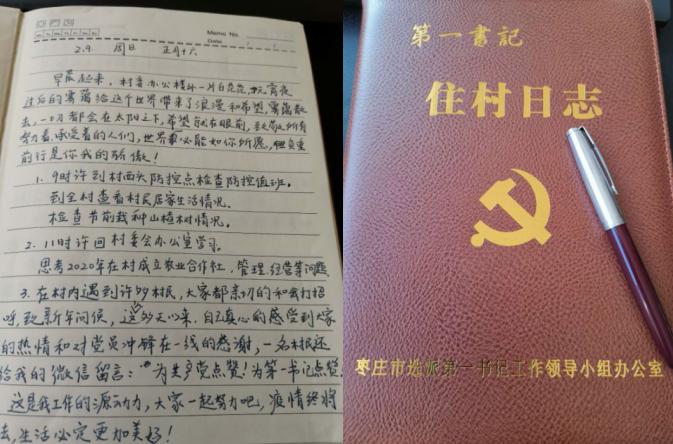 Memo No.
Date
2.9. 周日 正月十六
早晨起来，村委办公楼外一片白茫茫，元宵夜
过后的雾霭给这个世界带来了浪漫和希望，雾霭散
去，一切都会在太阳之下，希望就在眼前，致敬所有
努力着、承受着的人们，世界最必能如你所愿，但负重
前行是你我的骄傲！
1. 9时许到村西头防控点检查防控值班。
到全村查看村民居家生活情况。
检查节前栽种山楂树情况。
2. 11时许回村委会办公室学习。
思考2020年在村成立农业合作社，管理、经营等问题
3. 在村内遇到许多村民，大家都亲切的和我打招
呼，致新年问候，这多天以来，自己真心的感受到大家
的热情和对党员冲锋在一线的感谢，一名村民还
给我的微信留言：“为共产党点赞！为第一书记点赞
这是我工作的源动力，大家一起努力吧，疫情终将
去，生活必定更加美好！
第一書記
住村日志
枣庄市选派第一书记工作领导小组办公室